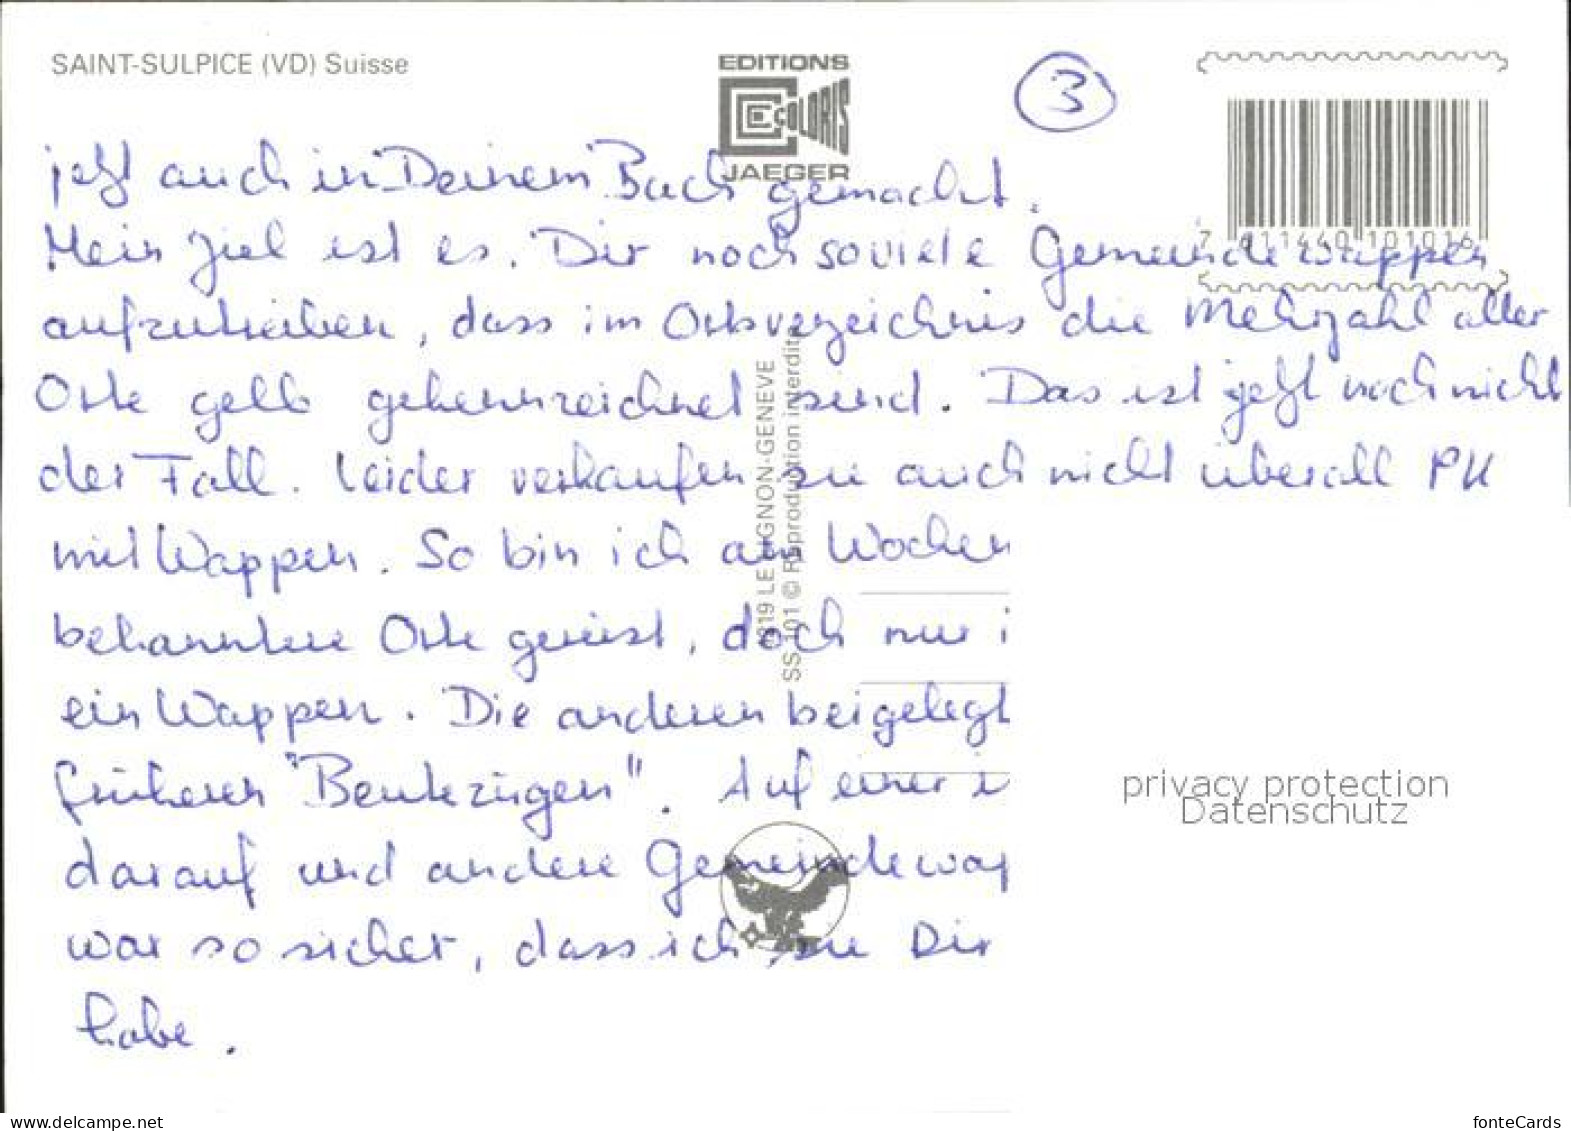 SAINT-SULPICE (VD) Suisse
EDITIONS
COLORIS
JAEGER
3
7 611440 101016
jetzt auch in Deinem Buch gemacht.
Mein Ziel ist es, Dir noch soviele Gemeindewappen
aufzutreiben, dass im Ortsverzeichnis die Mehrzahl aller
Orte gelb gekennzeichnet sind. Das ist jetzt noch nicht
der Fall. Leider verkaufen sie auch nicht überall PK
mit Wappen. So bin ich am Wochen
bekanntere Orte gereist, doch nur i
ein Wappen. Die anderen beigelegt
früheren "Beutezügen". Auf einer i
darauf und andere Gemeindewap
war so sicher, dass ich sie Dir
habe.
1219 LE LIGNON-GENEVE
SS 101 © Reproduction interdite
privacy protection
Datenschutz
www.delcampe.net
fonteCards